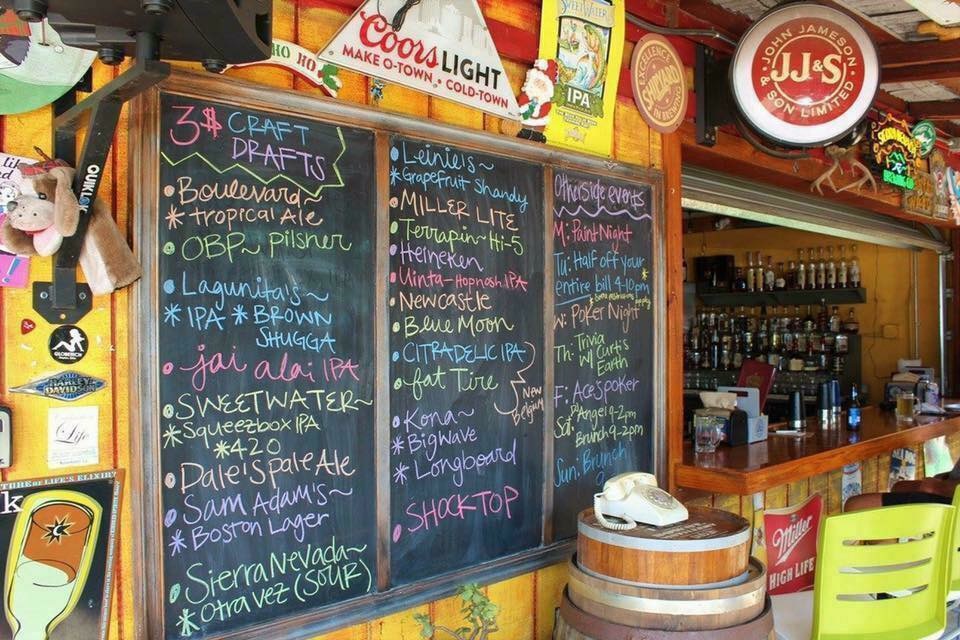 3$ CRAFT
DRAFTS
Boulevard~
* tropical Ale
OBP~ Pilsner
Lagunita's~
* IPA * BROWN
SHUGGA
jai alai IPA
SWEETWATER~
* Squeezbox IPA
* 420
Dale's Pale Ale
Sam Adam's~
* Boston Lager
Sierra Nevada~
* Otra vez (SOUR)
Leinie's~
* Grapefruit Shandy
MILLER LITE
Terrapin~Hi-5
Heineken
Uinta-Hopnosh IPA
Newcastle
Blue Moon
CITRADELIC IPA
fat Tire
New
Belgium
Kona~
* Big Wave
* Longboard
SHOCKTOP
Otherside events
M: Paint Night
Tu: Half off your
entire bill 4-10pm
W: Poker Night
Th: Trivia
w/ Curtis
Earth
F: Aces poker
Sat: DJ Angel 9-2pm
Brunch 9-2pm
Sun: Brunch
HO HO
Coors LIGHT
MAKE O-TOWN COLD-TOWN
SWEETWATER
IPA
EXCELLENCE
SHIPYARD
IN BREWING
JOHN JAMESON
JJ&S
& SON LIMITED
BREWING CO
QUIKLO
GLOBERICH
HARLEY-
DAVIDSON
Life
TURE OF LIFE'S ELIXIR?
k
Miller
HIGH LIFE